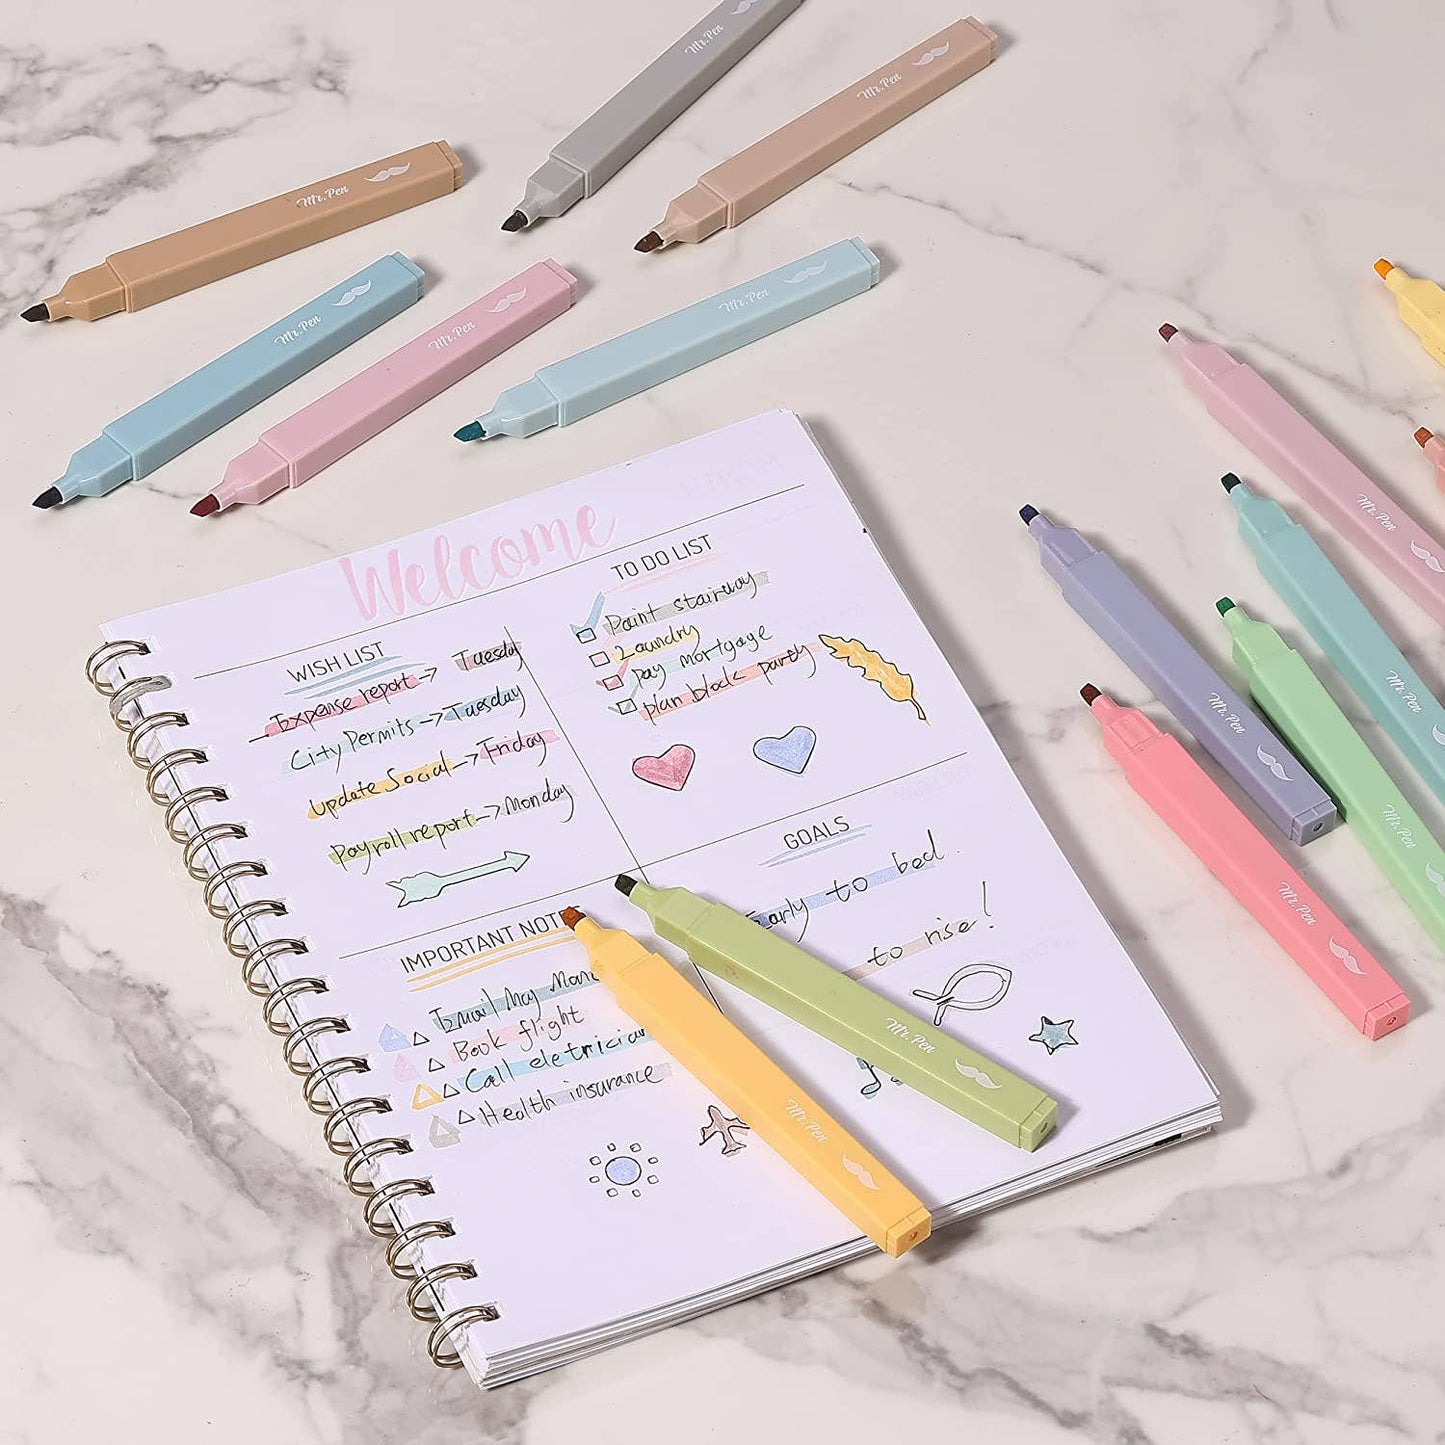 Mr.Pen
Mr.Pen
Mr.Pen
Mr.Pen
Mr.Pen
Mr.Pen
Welcome
WISH LIST
Expense report → Tuesday
City Permits → Tuesday
Update Social → Friday
Payroll report → Monday
TO DO LIST
Paint stairway
Laundry
Pay mortgage
plan block party
IMPORTANT NOTES
Email May
Book flight
Call eletrician
Health insurance
GOALS
Early to bed.
to rise!
Mr.Pen
Mr.Pen
Mr.Pen
Mr.Pen
Mr.Pen
Mr.Pen
Mr.Pen